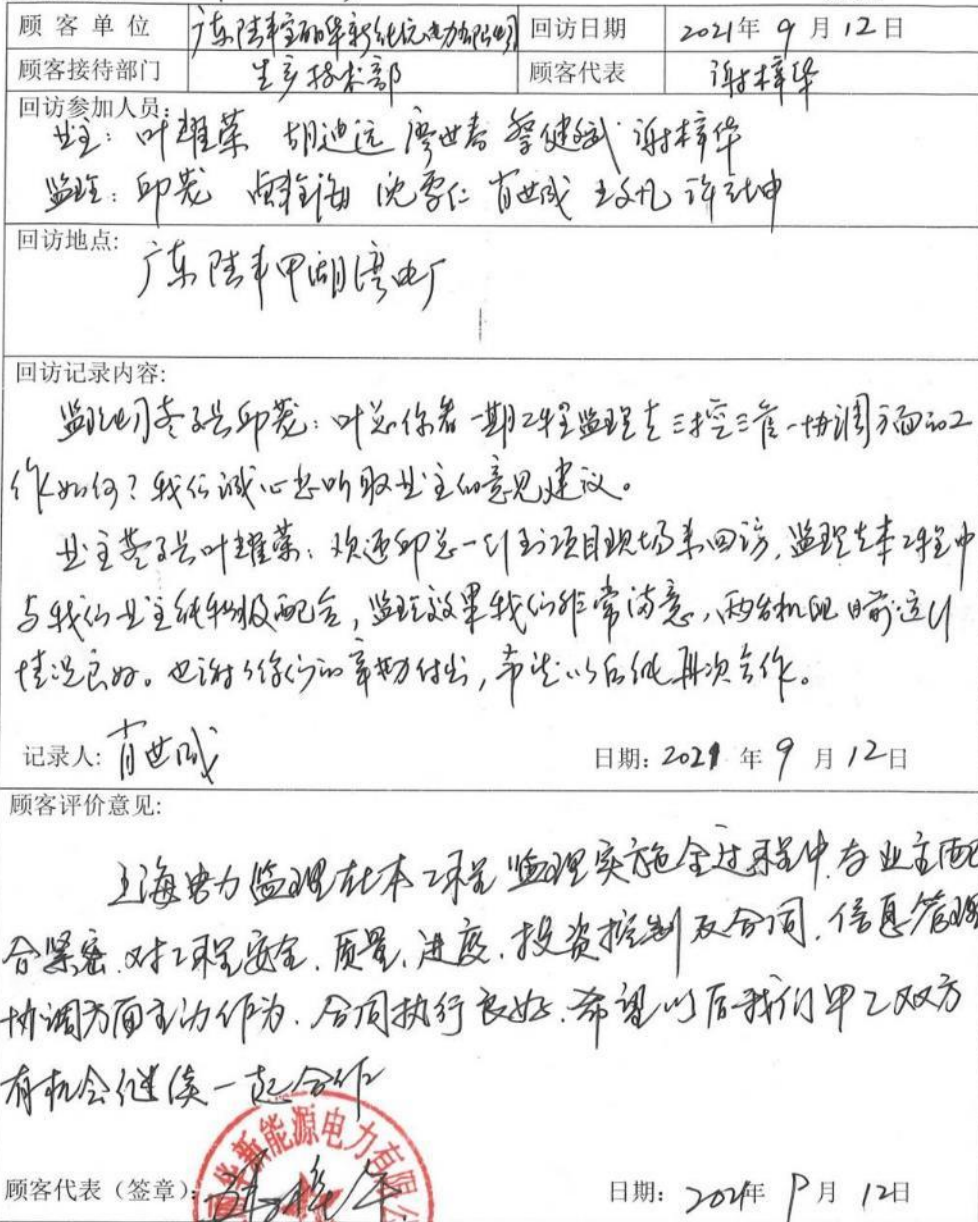 顾客单位 广东陆丰宝丽华新能源电力有限公司 回访日期 2021年9月12日
顾客接待部门 生产技术部 顾客代表 谢梓华
回访参加人员:
业主: 叶耀荣 胡迪远 廖世春 黎健斌 谢梓华
监理: 邱茂 沈雪仁 肖世成 王文凡
回访地点:
广东陆丰甲湖湾电厂
回访记录内容:
监理公司老总邱茂: 叶总你看一期工程监理在三控三管一协调方面的工
作如何? 我们诚心想听取业主的意见建议。
业主老总叶耀荣: 欢迎邱总一行到项目现场来回访, 监理在本工程中
与我们业主能积极配合, 监理效果我们非常满意, 两台机组目前运行
情况良好。也谢谢你们的辛勤付出, 希望以后能再次合作。
记录人: 肖世成 日期: 2021年9月12日
顾客评价意见:
上海电力监理在本工程监理实施全过程中,与业主配
合紧密,对工程安全、质量、进度、投资控制及合同、信息管理
协调方面主动作为、合同执行良好、希望以后我们甲乙双方
有机会继续一起合作
华新能源电力有限公
顾客代表(签章): 谢梓华 日期: 2021年9月12日